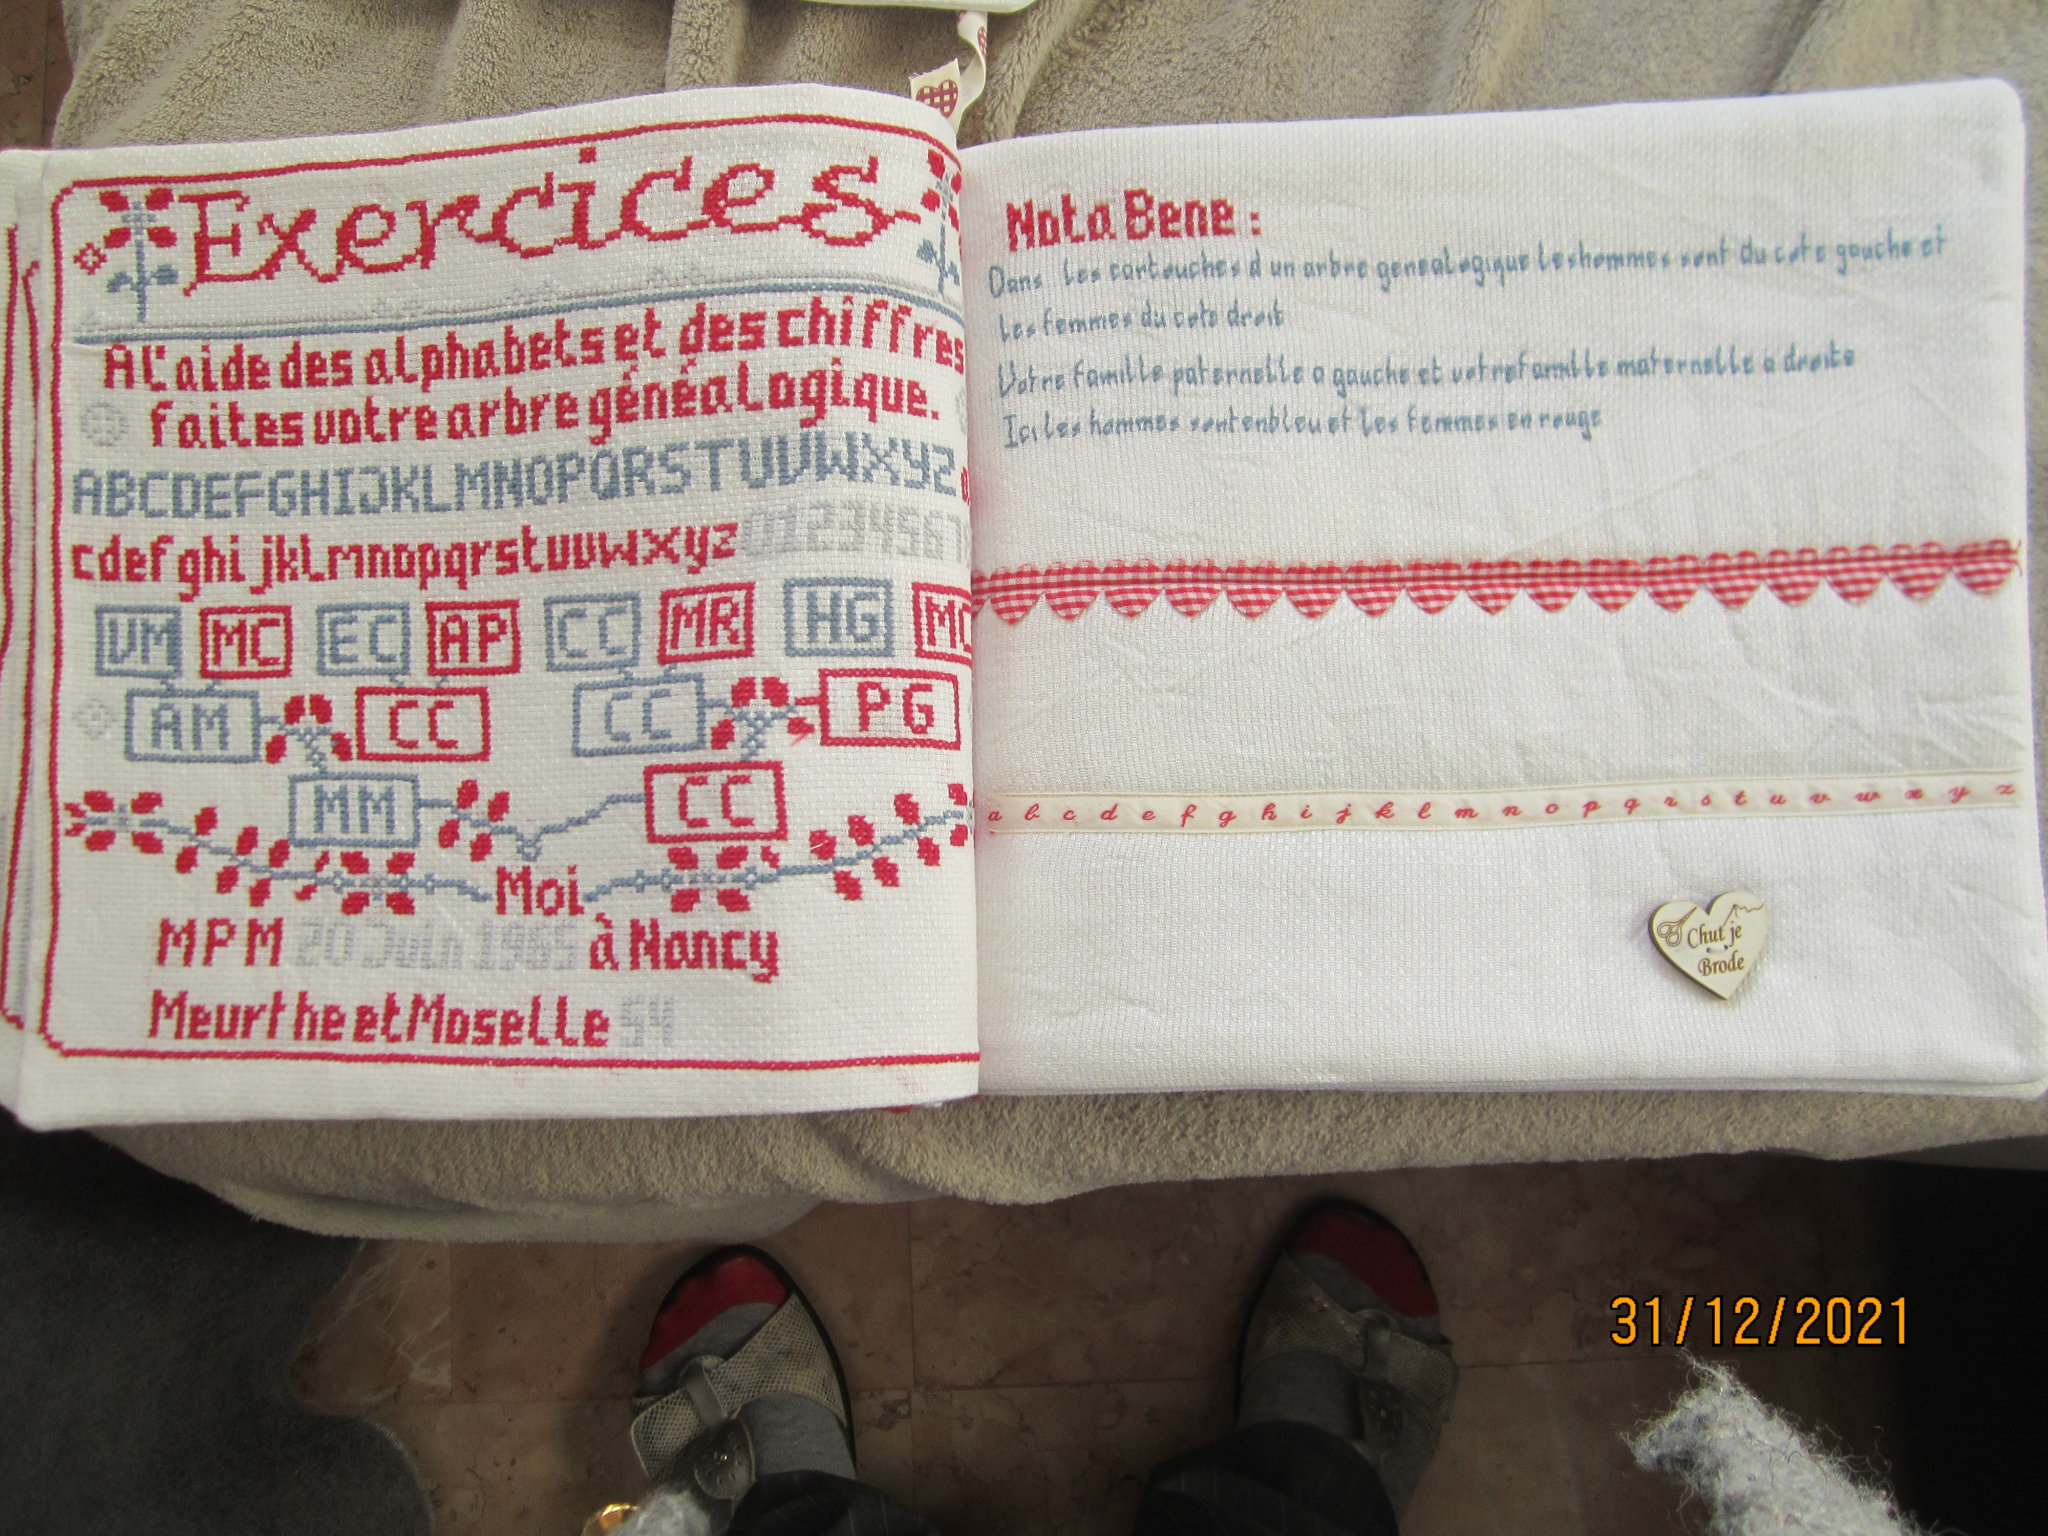 Exercices
A l'aide des alphabets et des chiffres
faites votre arbre généalogique.
ABCDEFGHIJKLMNOPQRSTUVWXYZ a
cdefghijklmnopqrstuvwxyz 01234567
VM MC EC AP CC MR HG MC
AM CC CC PG
MM CC
Moi
MPM 20 Juin 1965 à Nancy
Meurthe et Moselle
Nota Bene :
Dans les cartouches d un arbre genealogique les hommes sont du cote gauche et
les femmes du cote droit
Votre famille paternelle a gauche et votre famille maternelle a droite
Ici les hommes sont en bleu et les femmes en rouge
a b c d e f g h i j k l m n o p q r s t u v w x y z
Chut je
Brode
31/12/2021